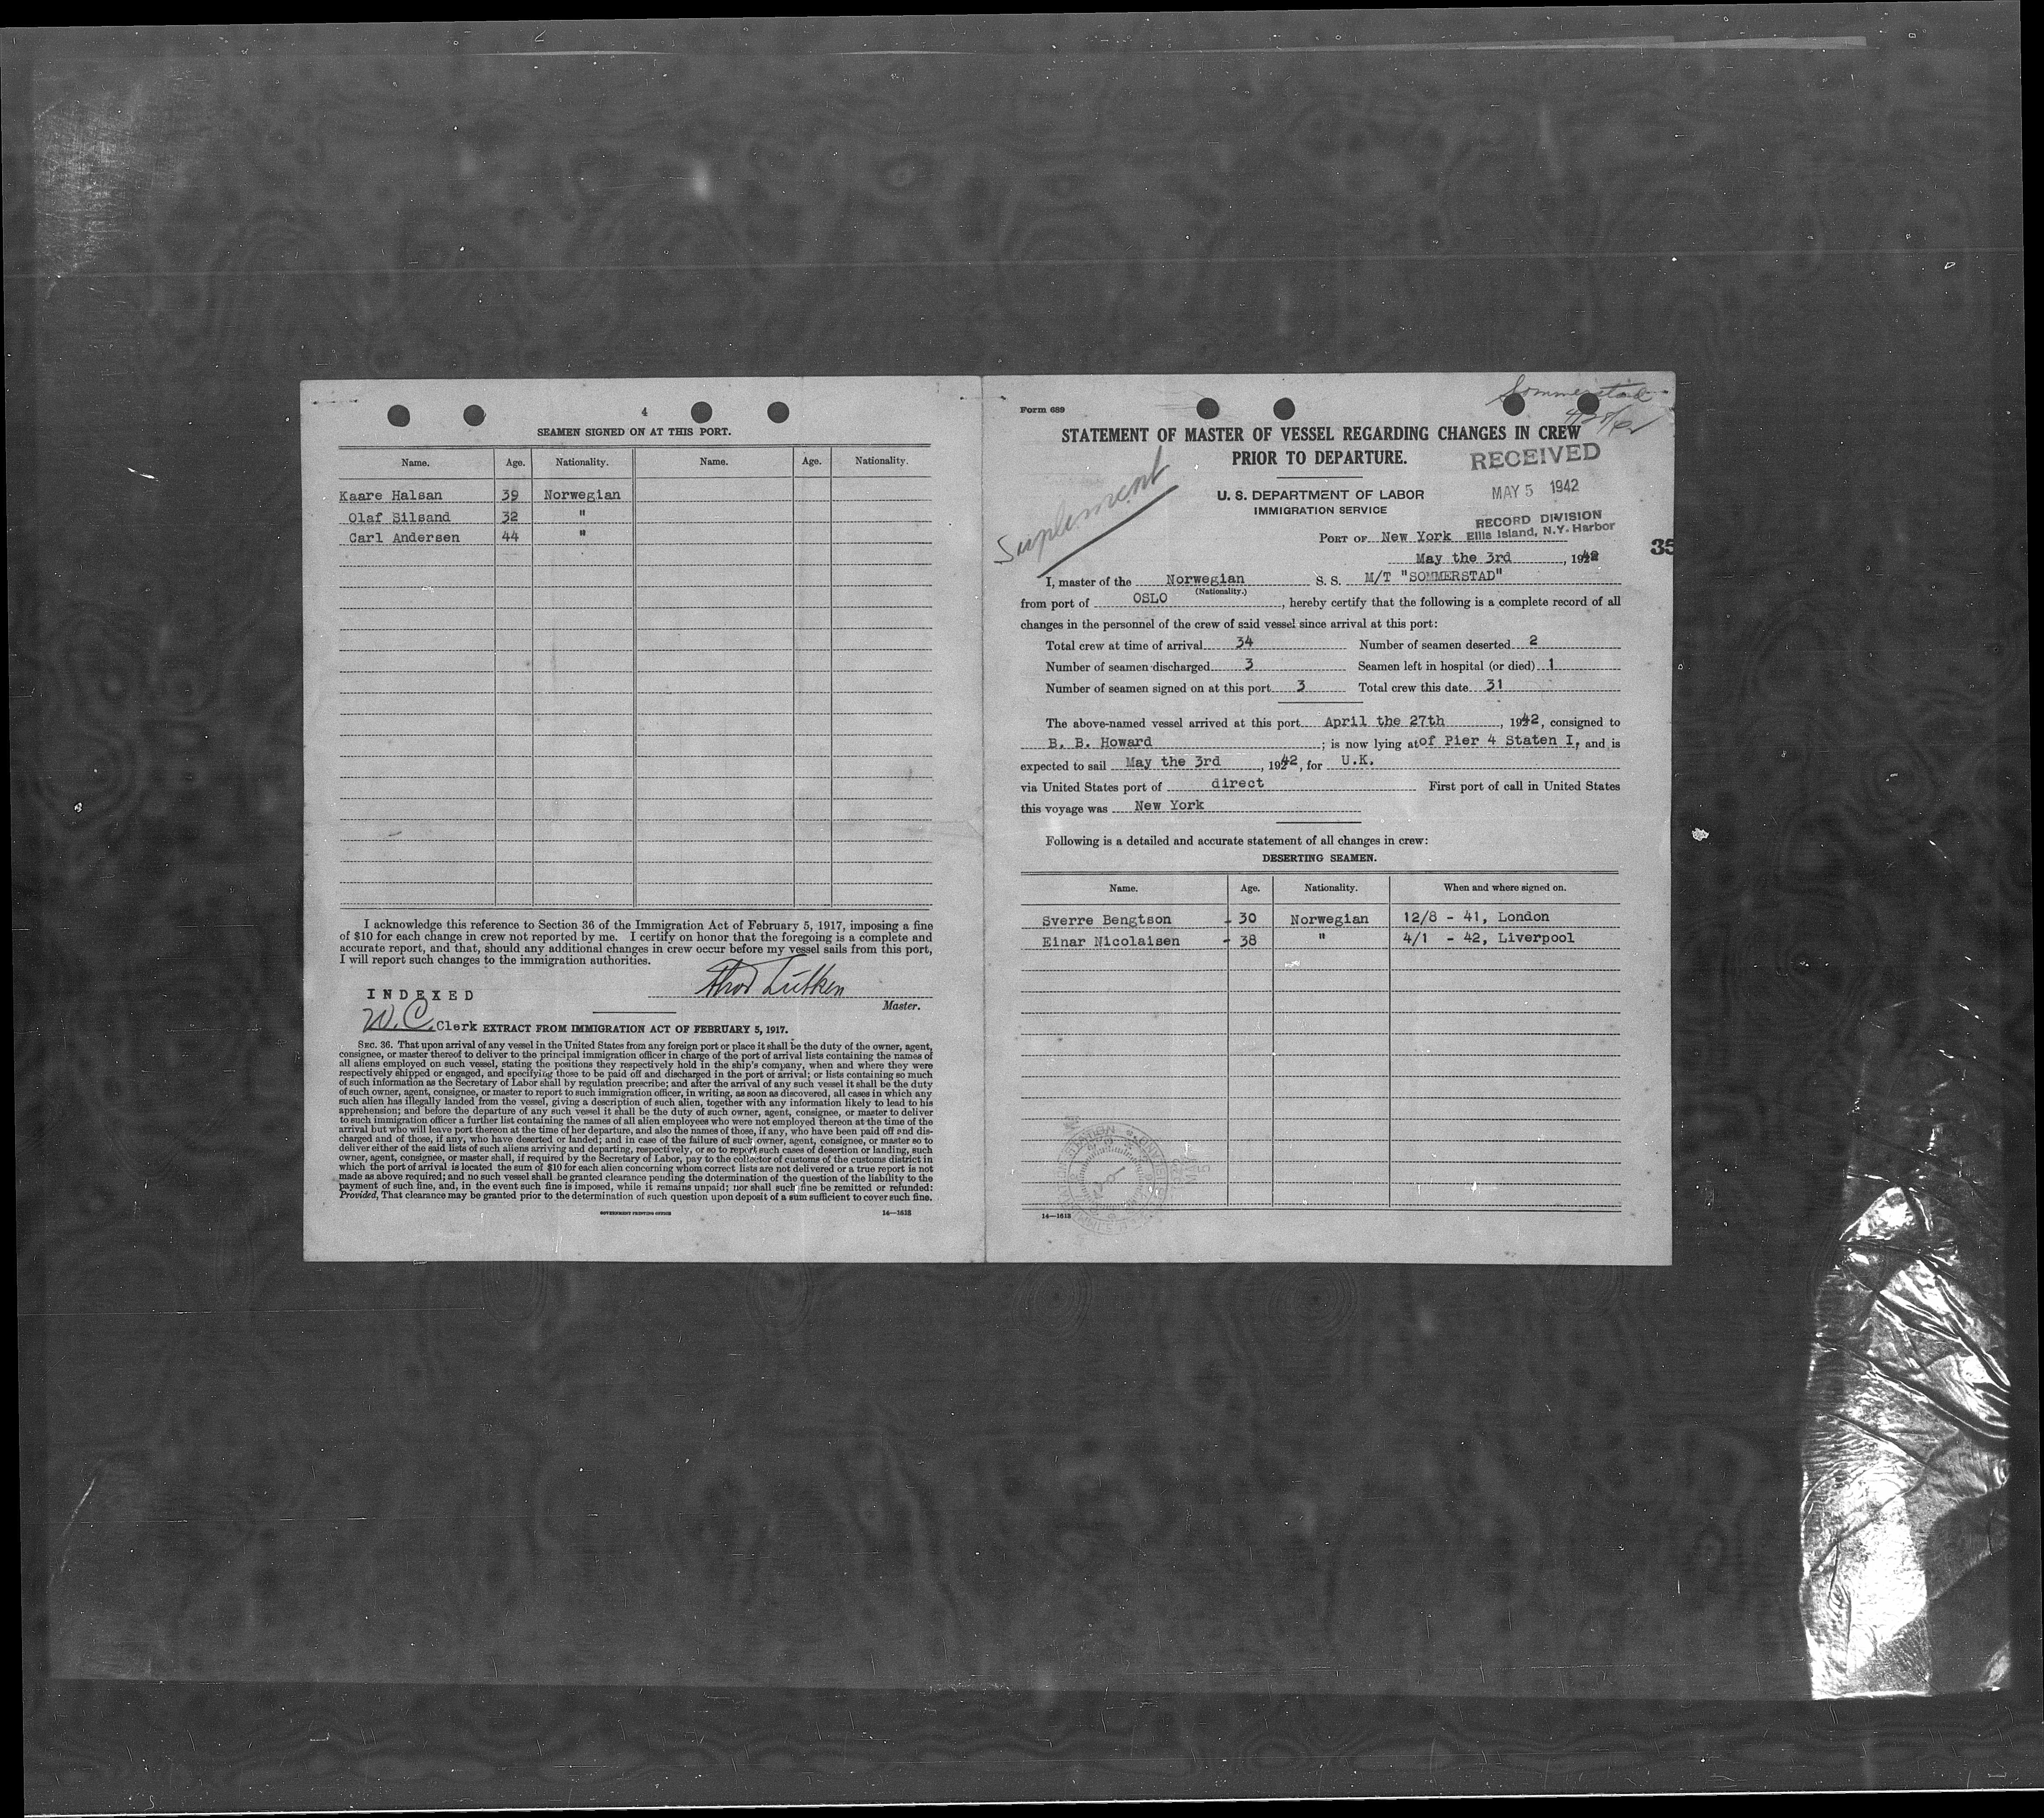 4
SEAMEN SIGNED ON AT THIS PORT.
Name. Age. Nationality. Name. Age. Nationality.
Kaare Halsan 39 Norwegian
Olaf Silsand 32 "
Carl Andersen 44 "
I acknowledge this reference to Section 36 of the Immigration Act of February 5, 1917, imposing a fine
of $10 for each change in crew not reported by me. I certify on honor that the foregoing is a complete and
accurate report, and that, should any additional changes in crew occur before my vessel sails from this port,
I will report such changes to the immigration authorities.
Lütken
INDEXED
Master.
W. C. Clerk EXTRACT FROM IMMIGRATION ACT OF FEBRUARY 5, 1917.
SEC. 36. That upon arrival of any vessel in the United States from any foreign port or place it shall be the duty of the owner, agent,
consignee, or master thereof to deliver to the principal immigration officer in charge of the port of arrival lists containing the names of
all aliens employed on such vessel, stating the positions they respectively hold in the ship's company, when and where they were
respectively shipped or engaged, and specifying those to be paid off and discharged in the port of arrival; or lists containing so much
of such information as the Secretary of Labor shall by regulation prescribe; and after the arrival of any such vessel it shall be the duty
of such owner, agent, consignee, or master to report to such immigration officer, in writing, as soon as discovered, all cases in which any
such alien has illegally landed from the vessel, giving a description of such alien, together with any information likely to lead to his
apprehension; and before the departure of any such vessel it shall be the duty of such owner, agent, consignee, or master to deliver
to such immigration officer a further list containing the names of all alien employees who were not employed thereon at the time of the
arrival but who will leave port thereon at the time of her departure, and also the names of those, if any, who have been paid off and dis-
charged and of those, if any, who have deserted or landed; and in case of the failure of such owner, agent, consignee, or master so to
deliver either of the said lists of such aliens arriving and departing, respectively, or so to report such cases of desertion or landing, such
owner, agent, consignee, or master shall, if required by the Secretary of Labor, pay to the collector of customs of the customs district in
which the port of arrival is located the sum of $10 for each alien concerning whom correct lists are not delivered or a true report is not
made as above required; and no such vessel shall be granted clearance pending the determination of the question of the liability to the
payment of such fine, and, in the event such fine is imposed, while it remains unpaid; nor shall such fine be remitted or refunded:
Provided, That clearance may be granted prior to the determination of such question upon deposit of a sum sufficient to cover such fine.
GOVERNMENT PRINTING OFFICE 14—1613
Sommerstad
Form 689
STATEMENT OF MASTER OF VESSEL REGARDING CHANGES IN CREW
PRIOR TO DEPARTURE.
RECEIVED
MAY 5 1942
RECORD DIVISION
Ellis Island, N.Y. Harbor
Suplement
U. S. DEPARTMENT OF LABOR
IMMIGRATION SERVICE
PORT OF New York
35
May the 3rd, 1942
I, master of the Norwegian S. S. M/T "SOMMERSTAD"
(Nationality.)
from port of OSLO, hereby certify that the following is a complete record of all
changes in the personnel of the crew of said vessel since arrival at this port:
Total crew at time of arrival 34 Number of seamen deserted 2
Number of seamen discharged 3 Seamen left in hospital (or died) 1
Number of seamen signed on at this port 3 Total crew this date 31
The above-named vessel arrived at this port April the 27th, 1942, consigned to
B. B. Howard; is now lying at of Pier 4 Staten I, and is
expected to sail May the 3rd, 1942, for U.K.
via United States port of direct First port of call in United States
this voyage was New York
Following is a detailed and accurate statement of all changes in crew:
DESERTING SEAMEN.
Name. Age. Nationality. When and where signed on.
Sverre Bengtson - 30 Norwegian 12/8 - 41, London
Einar Nicolaisen - 38 " 4/1 - 42, Liverpool
14—1613